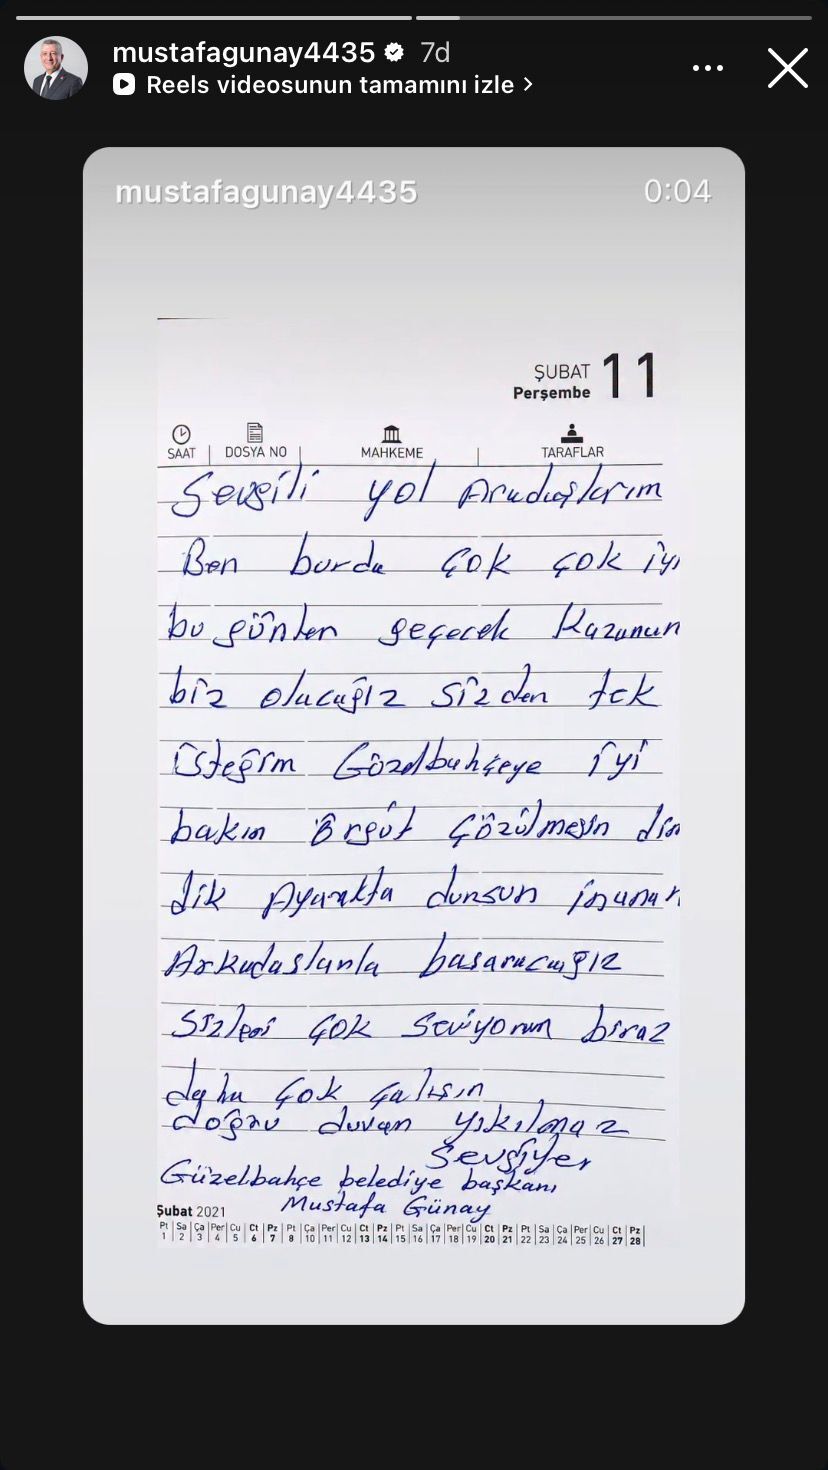 mustafagunay4435 7d
Reels videosunun tamamını izle >
mustafagunay4435 0:04
ŞUBAT 11
Perşembe
SAAT DOSYA NO MAHKEME TARAFLAR
Sevgili yol Arudaşlarım
Ben burda çok çok iyi
bu günler geçecek Kazanan
biz olacağız sizden tek
isteğim Güzelbahçeye iyi
bakın Örgüt Çözülmesin dim
dik Ayaakta dursun inanan
Arkadaslarla basaracağız
Sizleri çok seviyorum biraz
daha çok çalışın
doğru duvar yıkılmaz
Sevgiler
Güzelbahçe belediye başkanı
Mustafa Günay
Şubat 2021
Pt Sa Ça Per Cu Ct Pz Pt Ça Per Cu Ct Pz Pt Sa Ça Per Cu Ct Pz Pt Sa Ça Per Cu Ct Pz
1 2 3 4 5 6 7 8 10 11 12 13 14 15 16 17 18 19 20 21 22 23 24 25 26 27 28